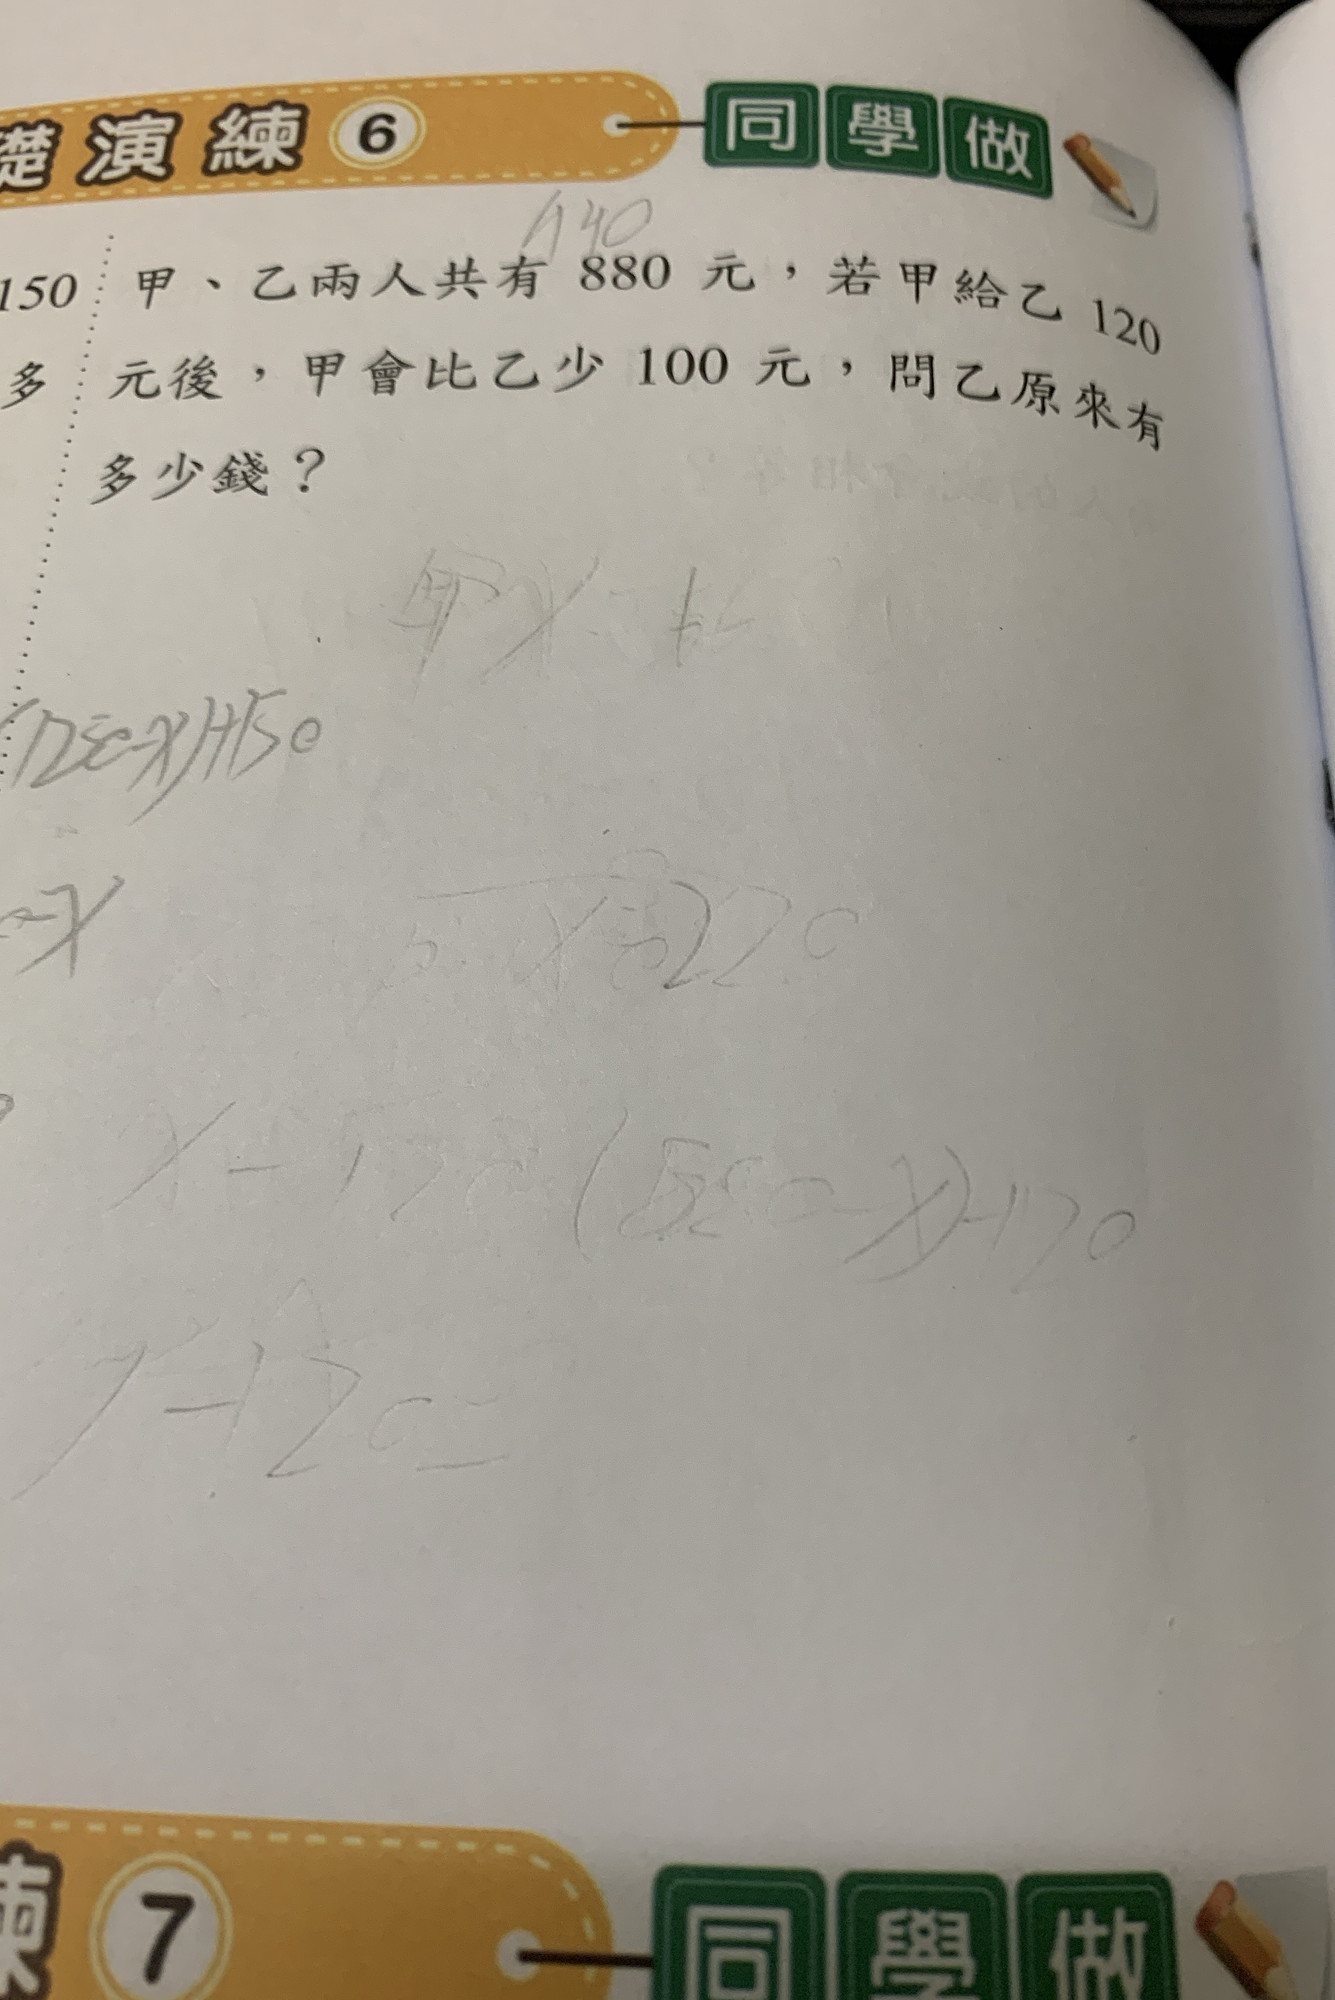 礎演練 6 同學做
440
150
甲、乙兩人共有 880 元，若甲給乙 120
多
元後，甲會比乙少 100 元，問乙原來有
多少錢？
甲x
-x)+150
-x
x=220
x-120 (880-x)+120
x-120=
練 7 同學做